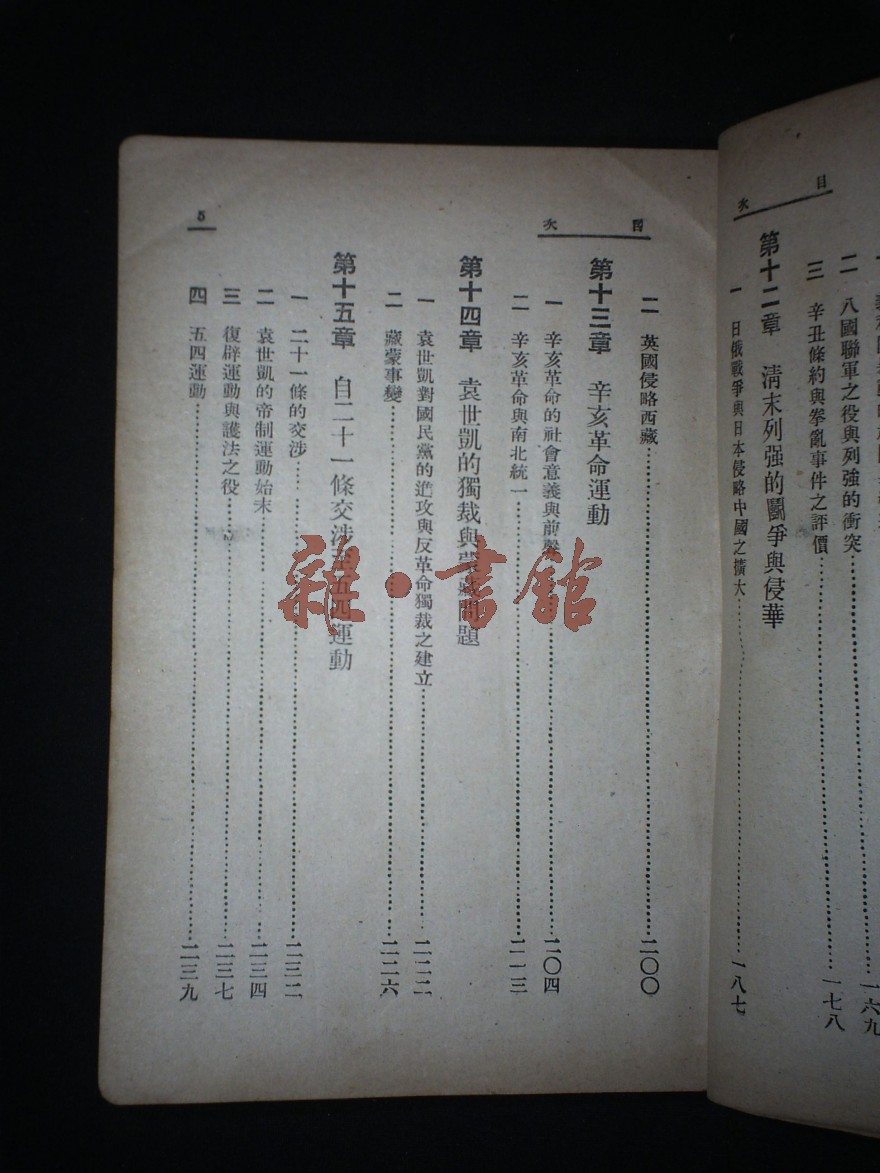 目 次
二 八國聯軍之役與列強的衝突……一六九
三 辛丑條約與拳亂事件之評價……一七八
第十二章 清末列强的鬭爭與侵華
一 日俄戰爭與日本侵略中國之擴大……一八七
目 次
二 英國侵略西藏……二〇〇
第十三章 辛亥革命運動
一 辛亥革命的社會意義與前……二〇四
二 辛亥革命與南北統一……二一三
第十四章 袁世凱的獨裁與蒙藏問題
一 袁世凱對國民黨的進攻與反革命獨裁之建立……二二二
二 藏蒙事變……二二六
第十五章 自二十一條交涉至五四運動
一 二十一條的交涉……二三二
二 袁世凱的帝制運動始末……二三四
三 復辟運動與護法之役……二三七
四 五四運動……二三九
5
雜·書館